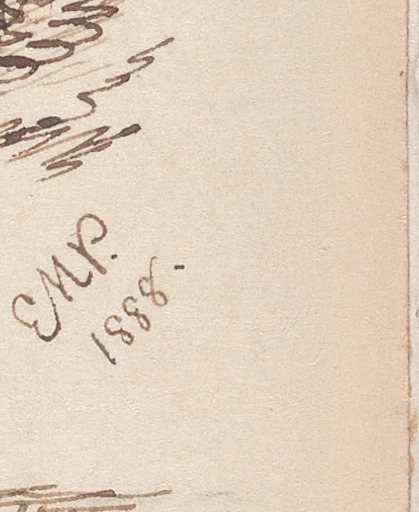 EMP.
1888.